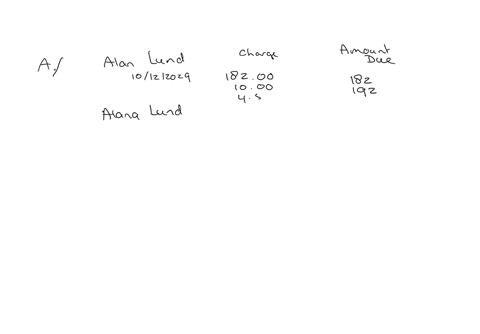 A/ Alan Lund Charge Amount Due
10/12/2029 182.00 182
10.00 192
4.5
Alana Lund